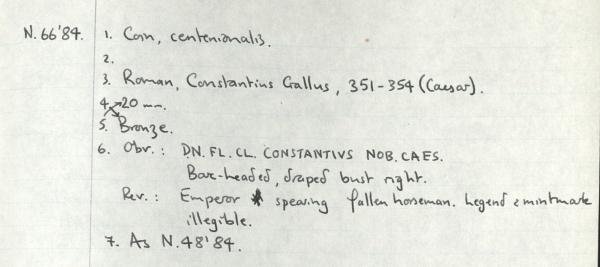 N. 66'84. 1. Coin, centenionalis.
2.
3. Roman, Constantius Gallus, 351-354 (Caesar).
4. 20 mm.
5. Bronze.
6. Obv.: DN. FL. CL. CONSTANTIVS NOB. CAES.
Bare-headed, draped bust right.
Rev.: Emperor spearing fallen horseman. Legend & mintmark
illegible.
7. As N.48'84.